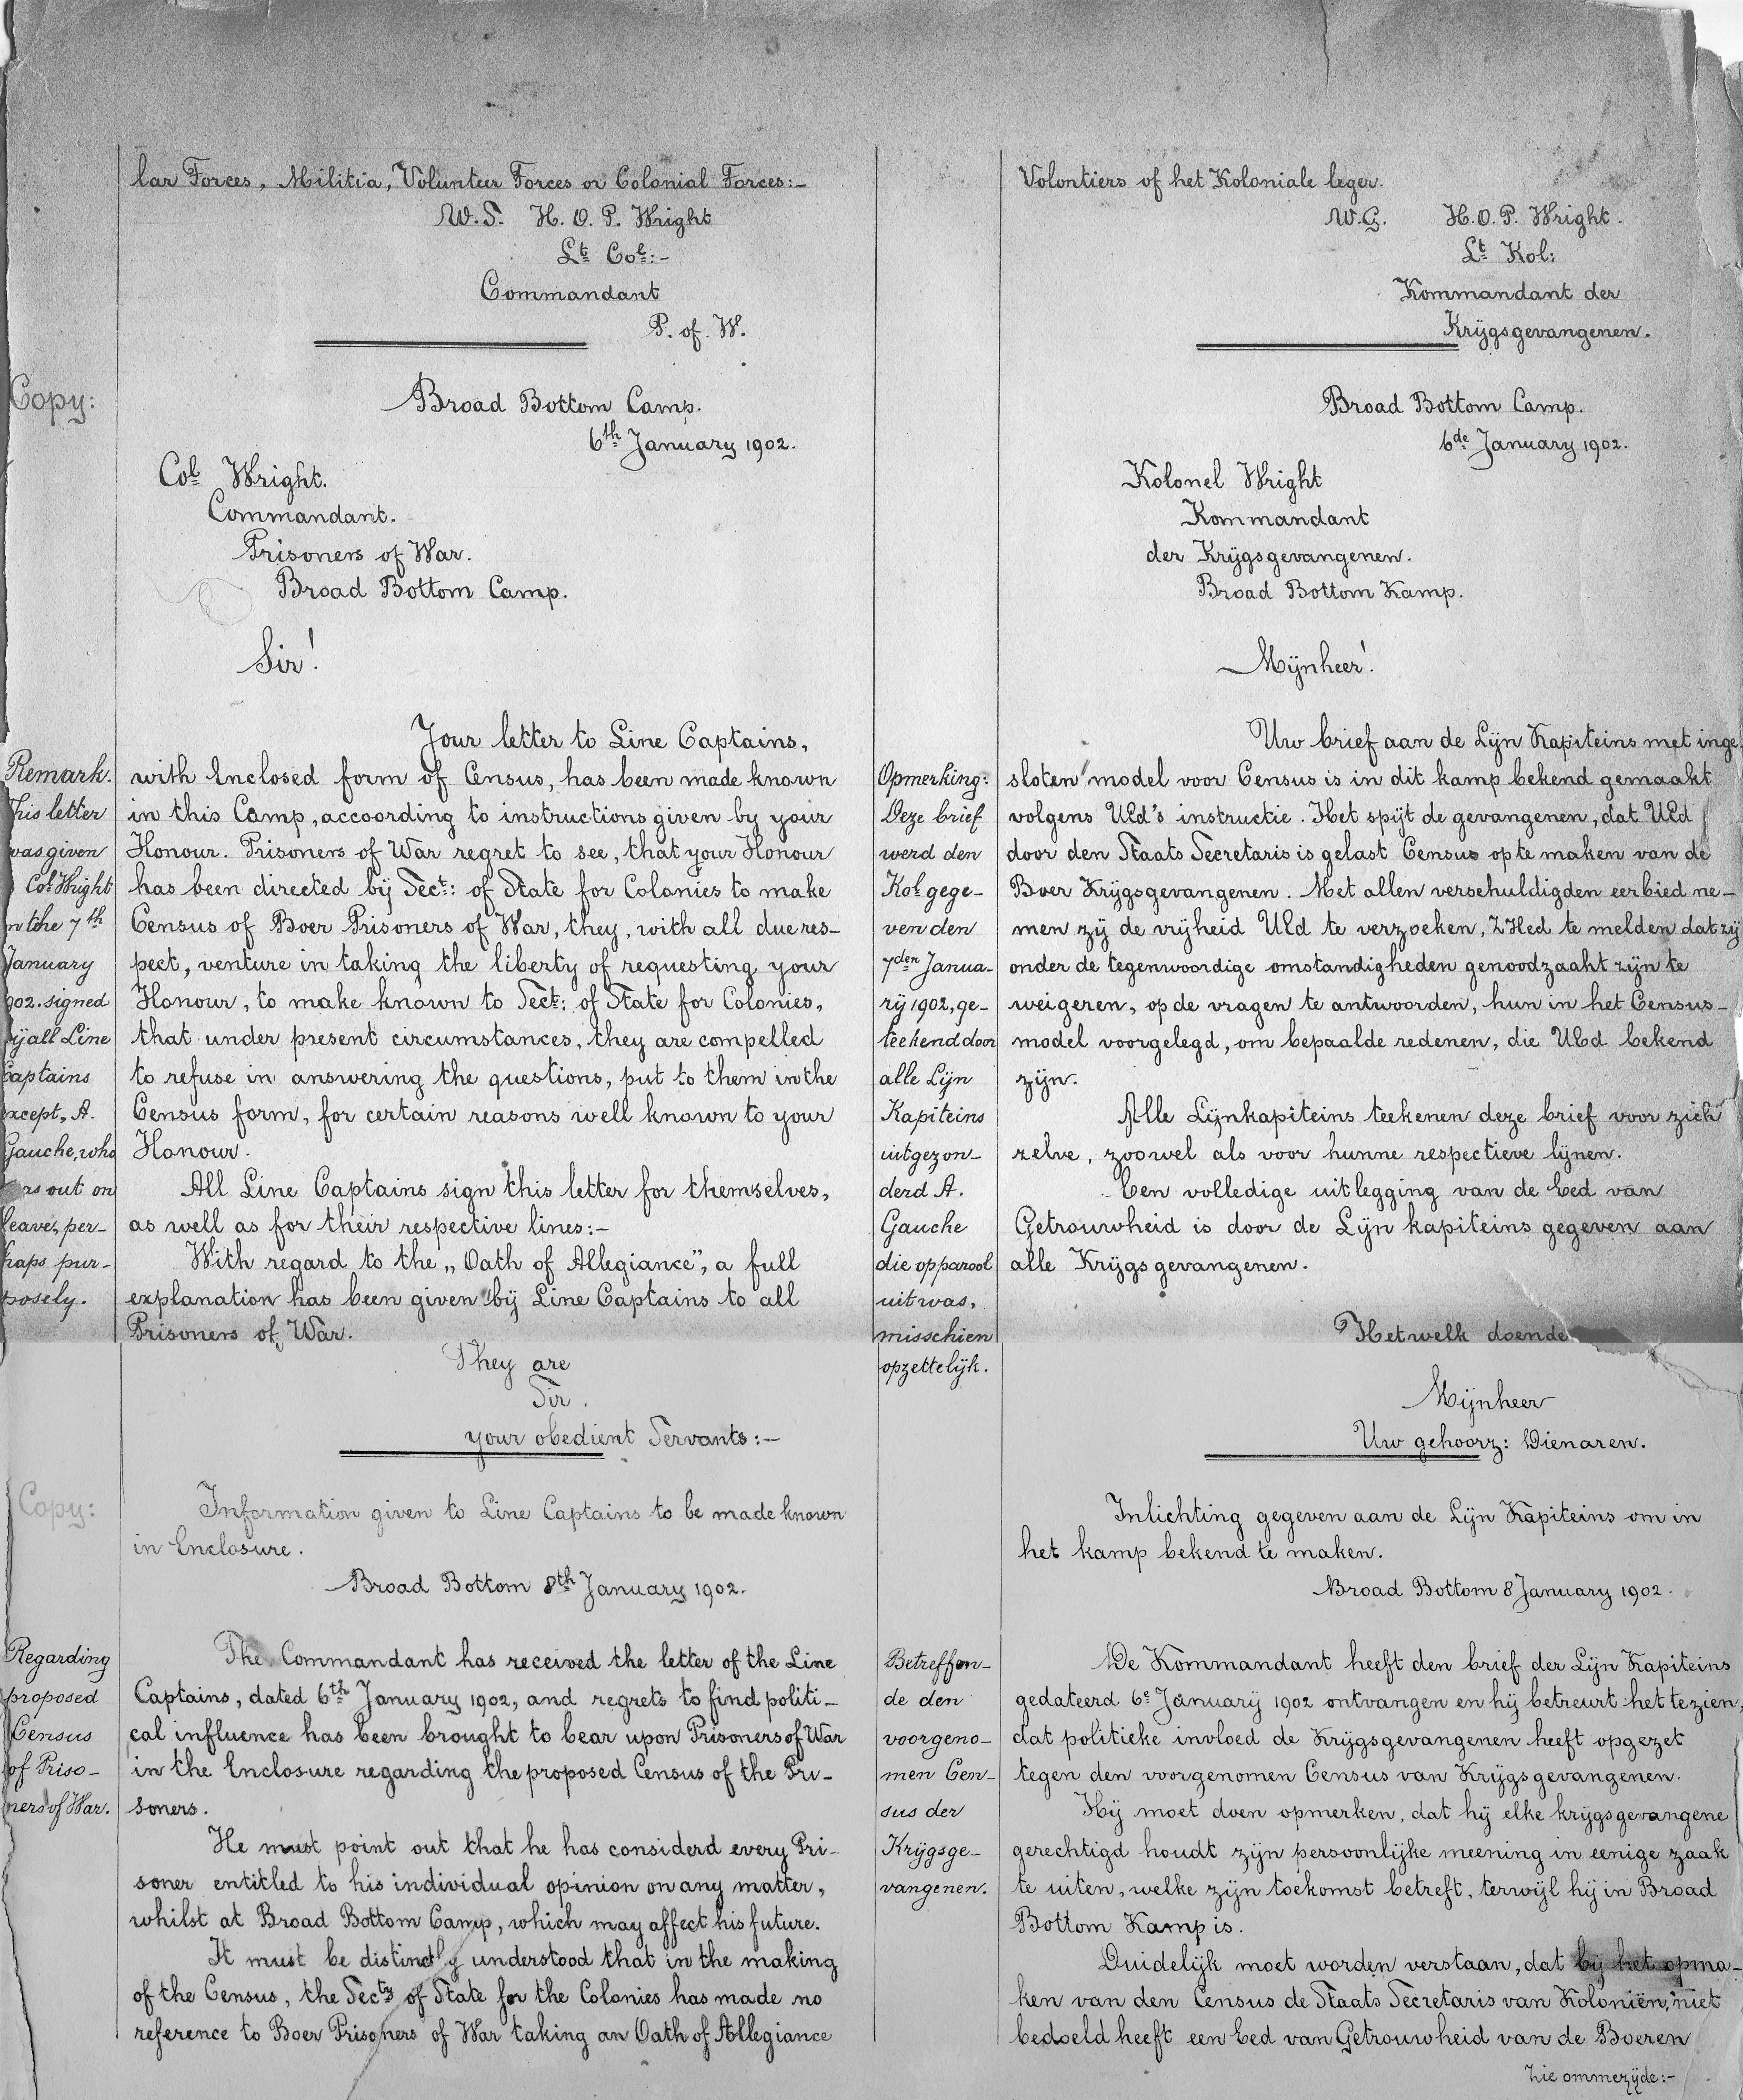 lar Forces, Militia, Volunteer Forces or Colonial Forces:-
W.S. H. O. P. Wright
Lt Col:-
Commandant
P. of. W.
Copy:
Broad Bottom Camp.
6th January 1902.
Col Wright.
Commandant.
Prisoners of War.
Broad Bottom Camp.
Sir!
Your letter to Line Captains,
with Enclosed form of Census, has been made known
in this Camp, accoording to instructions given by your
Honour. Prisoners of War regret to see, that your Honour
has been directed bij Sect: of State for Colonies to make
Census of Boer Prisoners of War, they, with all due res-
pect, venture in taking the liberty of requesting your
Honour, to make known to Sect: of State for Colonies,
that under present circumstances, they are compelled
to refuse in answering the questions, put to them in the
Census form, for certain reasons well known to your
Honour.
All Line Captains sign this letter for themselves,
as well as for their respective lines:-
With regard to the „Oath of Allegiance", a full
explanation has been given bij Line Captains to all
Prisoners of War.
They are
Sir.
your obedient Servants:-
Remark.
his letter
was given
Col Wright
n the 7th
January
902. signed
ij all Line
Captains
except, A.
Gauche, who
rs out on
leave, per-
haps pur-
posely.
Copy:
Information given to Line Captains to be made known
in Enclosure.
Broad Bottom 8th January 1902.
The Commandant has received the letter of the Line
Captains, dated 6th January 1902, and regrets to find politi-
cal influence has been brought to bear upon Prisoners of War
in the Enclosure regarding the proposed Census of the Pri-
soners.
He must point out that he has considerd every Pri-
soner entitled to his individual opinion on any matter,
whilst at Broad Bottom Camp, which may affect his future.
It must be distinctly understood that in the making
of the Census, the Secty of State for the Colonies has made no
reference to Boer Prisoners of War taking an Oath of Allegiance
Regarding
proposed
Census
of Priso-
ners of War.
Volontiers of het Koloniale leger.
W.G. H. O. P. Wright.
Lt Kol:
Kommandant der
Krijgsgevangenen.
Broad Bottom Camp.
6de January 1902.
Kolonel Wright
Kommandant
der Krijgsgevangenen.
Broad Bottom Kamp.
Mijnheer!
Uw brief aan de Lijn Kapiteins met inge-
sloten model voor Census is in dit kamp bekend gemaakt
volgens UEd's instructie. Het spijt de gevangenen, dat UEd
door den Staats Secretaris is gelast Census op te maken van de
Boer Krijgsgevangenen. Met allen verschuldigden eerbied ne-
men zij de vrijheid UEd te verzoeken, ZHEd te melden dat zij
onder de tegenwoordige omstandigheden genoodzaakt zijn te
weigeren, op de vragen te antwoorden, hun in het Census-
model voorgelegd, om bepaalde redenen, die UEd bekend
zijn.
Alle Lijnkapiteins teekenen deze brief voor zich
zelve, zoowel als voor hunne respectieve lijnen.
Een volledige uitlegging van de Eed van
Getrouwheid is door de Lijn kapiteins gegeven aan
alle Krijgsgevangenen.
Hetwelk doende
Mijnheer
Uw gehoorz: Dienaren.
Opmerking:
Deze brief
werd den
Kol gege-
ven den
7den Janua-
rij 1902, ge-
teekend door
alle Lijn
Kapiteins
uitgezon-
derd A.
Gauche
die op parool
uit was,
misschien
opzettelijk.
Inlichting gegeven aan de Lijn Kapiteins om in
het kamp bekend te maken.
Broad Bottom 8 January 1902.
De Kommandant heeft den brief der Lijn Kapiteins
gedateerd 6e Januarij 1902 ontvangen en hij betreurt het te zien,
dat politieke invloed de Krijgsgevangenen heeft opgezet
tegen den voorgenomen Census van Krijgsgevangenen.
Hij moet doen opmerken, dat hij elke krijgsgevangene
gerechtigd houdt zijn persoonlijke meening in eenige zaak
te uiten, welke zijn toekomst betreft, terwijl hij in Broad
Bottom Kamp is.
Duidelijk moet worden verstaan, dat bij het opma-
ken van den Census de Staats Secretaris van Koloniën, niet
bedoeld heeft een Eed van Getrouwheid van de Boeren
Zie ommezijde:-
Betreffen-
de den
voorgeno-
men Cen-
sus der
Krijgsge-
vangenen.